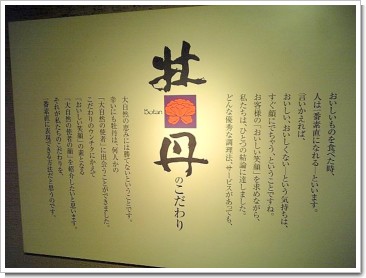 牡丹
Botan
のこだわり
おいしいものを食べた時、
人は一番素直になれる…といいます。
言いかえれば、
おいしい、おいしくない…という気持ちは、
すぐ顔にでちゃう、ということですね。
お客様の「おいしい笑顔」を求めながら、
私たちは、ひとつの結論に達しました。
どんな優秀な調理法、サービスがあっても、
大自然の恵みには勝てないということです。
幸いにも牡丹は、何人かの
「大自然の使者」に出会うことができました。
こだわりのウンチクにかえて
「おいしい笑顔」の素となる
「大自然の使者の顔」を紹介したいと思います。
それが私たちのこだわりを、
一番素直に表現できる方法だと思うのです。